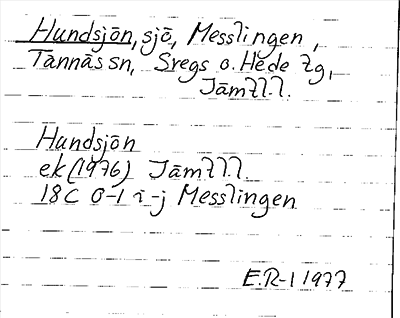 Hundsjön, sjö, Messlingen,
Tännäs sn, Svegs o. Hede tg,
Jämtl.l.
Hundsjön
ek (1976) Jämtl.l.
18C 0-1 i-j Messlingen
E.R-l 1977